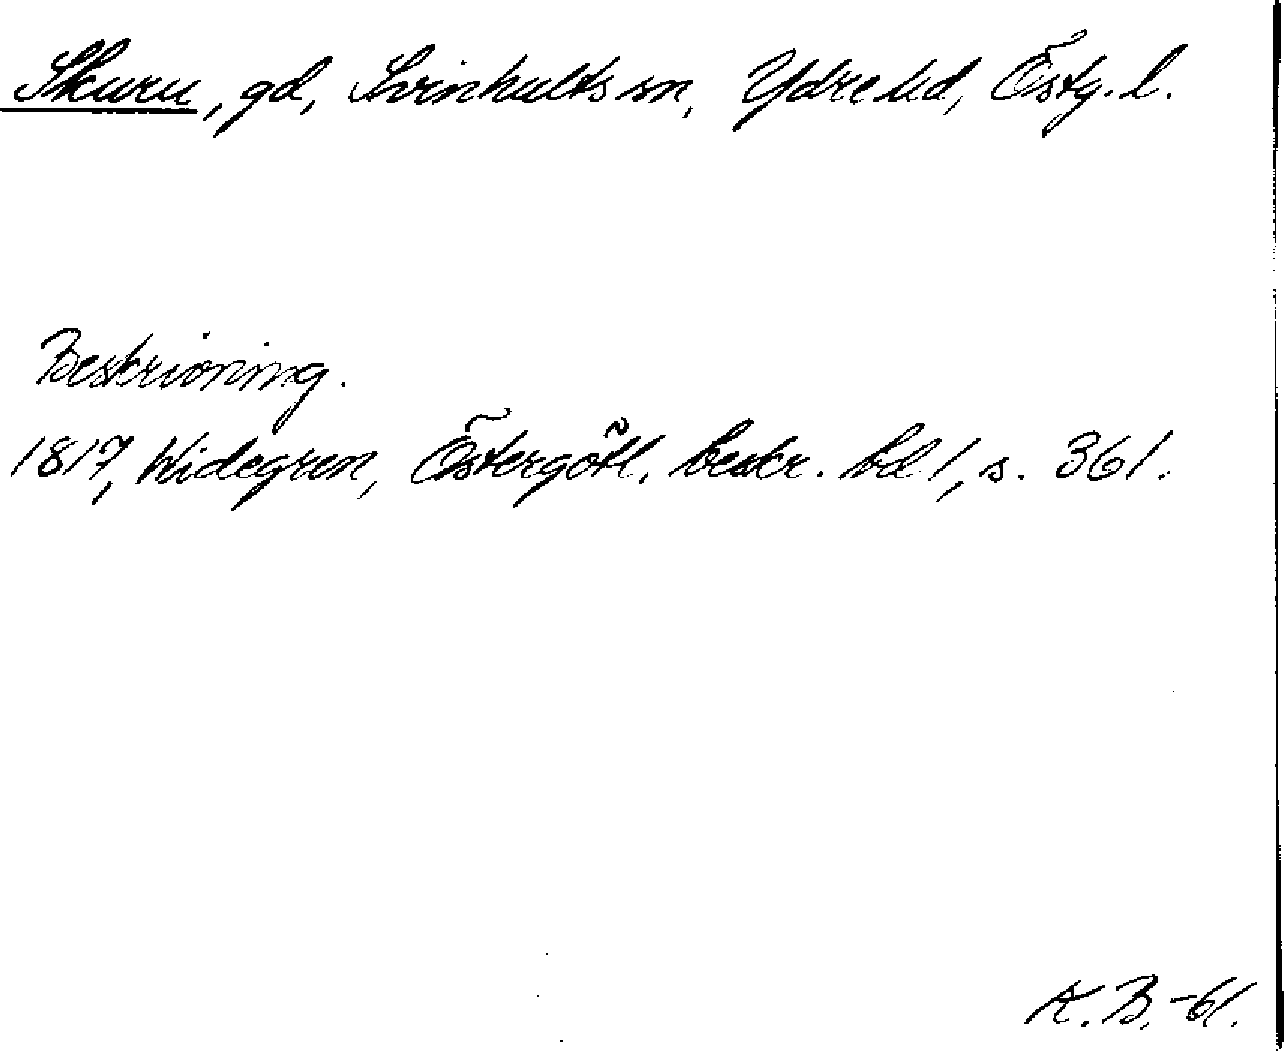 Skuru, gd, Svinhults sn, Ydre hd, Östg. l.
Beskrivning.
1817, Widegren, Östergötl. beskr. bd 1, s. 361.
K. B. -61.